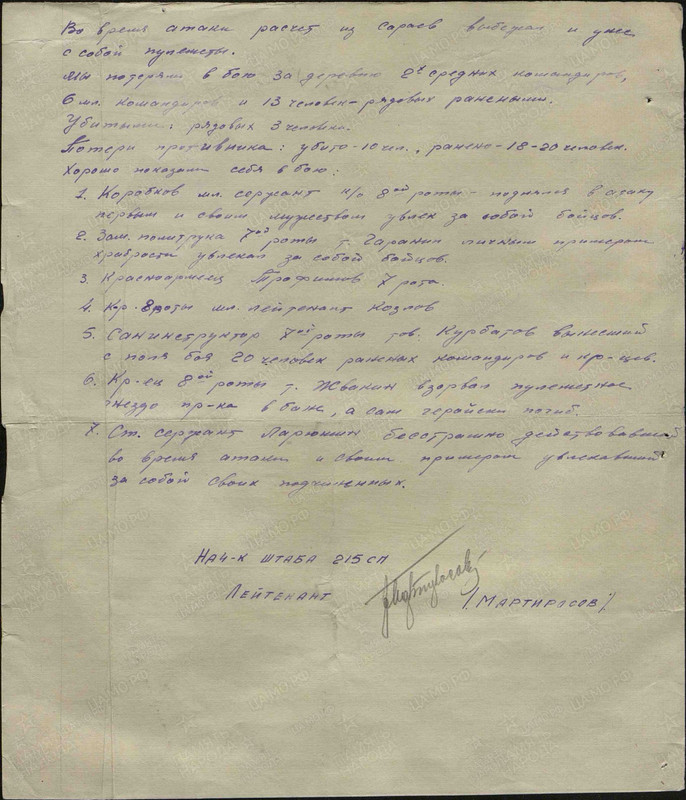 Во время атаки расчет из сараев выбежал и унес
с собой пулеметы.
Мы потеряли в бою за деревню 2х средних командиров,
6 мл. командиров и 13 человек рядовых ранеными.
Убитыми: рядовых 3 человека.
Потери противника: убито-10 чел., ранено-18-20 человек.
Хорошо показали себя в бою:
1. Коробков мл. сержант к/о 8ой роты - поднялся в атаку
первым и своим мужеством увлек за собой бойцов.
2. Зам. политрука 7ой роты т. Гаранин личным примером
храбрости увлекал за собой бойцов.
3. Красноармеец Трофимов 7 рота.
4. К-р 8 роты мл. лейтенант Козлов
5. Санинструктор 7ой роты тов. Курбатов вынесший
с поля боя 20 человек раненых командиров и кр-цев.
6. Кр-ец 8ой роты т. Жвакин взорвал пулеметное
гнездо пр-ка в бане, а сам геройски погиб.
7. Ст. сержант Ларюшин бесстрашно действовавший
во время атаки и своим примером увлекавший
за собой своих подчиненных.
НАЧ-К ШТАБА 215 СП
ЛЕЙТЕНАНТ /МАРТИРОСОВ/